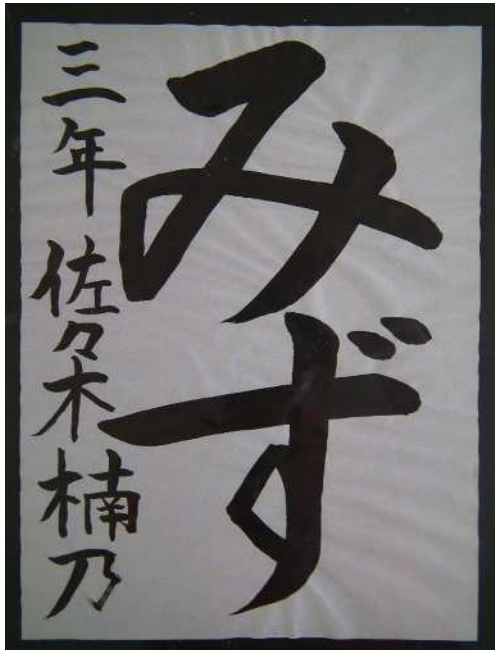 みず
三年 佐々木楠乃